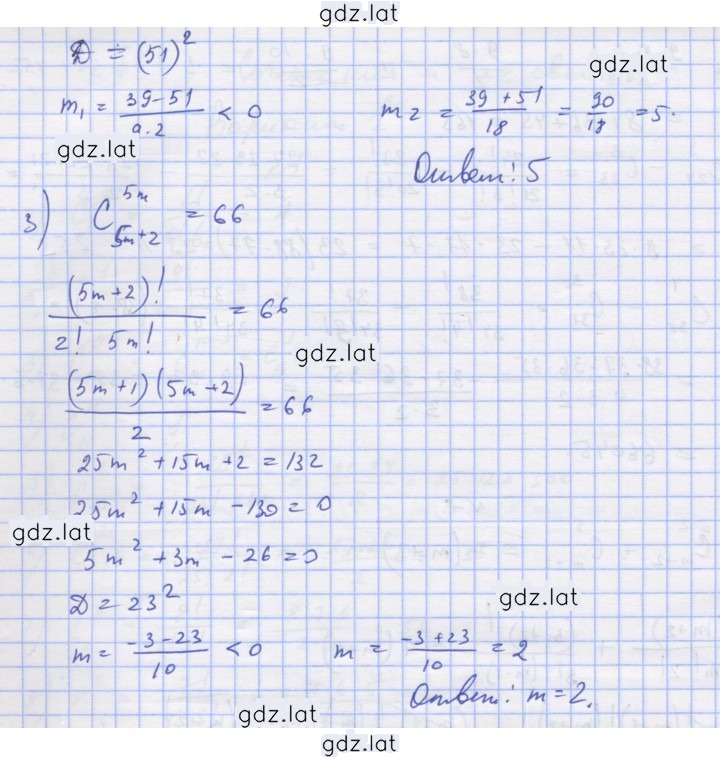 gdz.lat
D = (51)²
gdz.lat
m₁ = (39-51)/(9·2) < 0
m₂ = (39+51)/18 = 90/18 = 5.
gdz.lat
Ответ: 5
3) C_{5m+2}^{5m} = 66
(5m+2)!/(2! 5m!) = 66
gdz.lat
(5m+1)(5m+2)/2 = 66
25m² + 15m + 2 = 132
25m² + 15m - 130 = 0
gdz.lat
5m² + 3m - 26 = 0
D = 23²
gdz.lat
m = (-3-23)/10 < 0
m = (-3+23)/10 = 2
Ответ: m = 2.
gdz.lat
gdz.lat